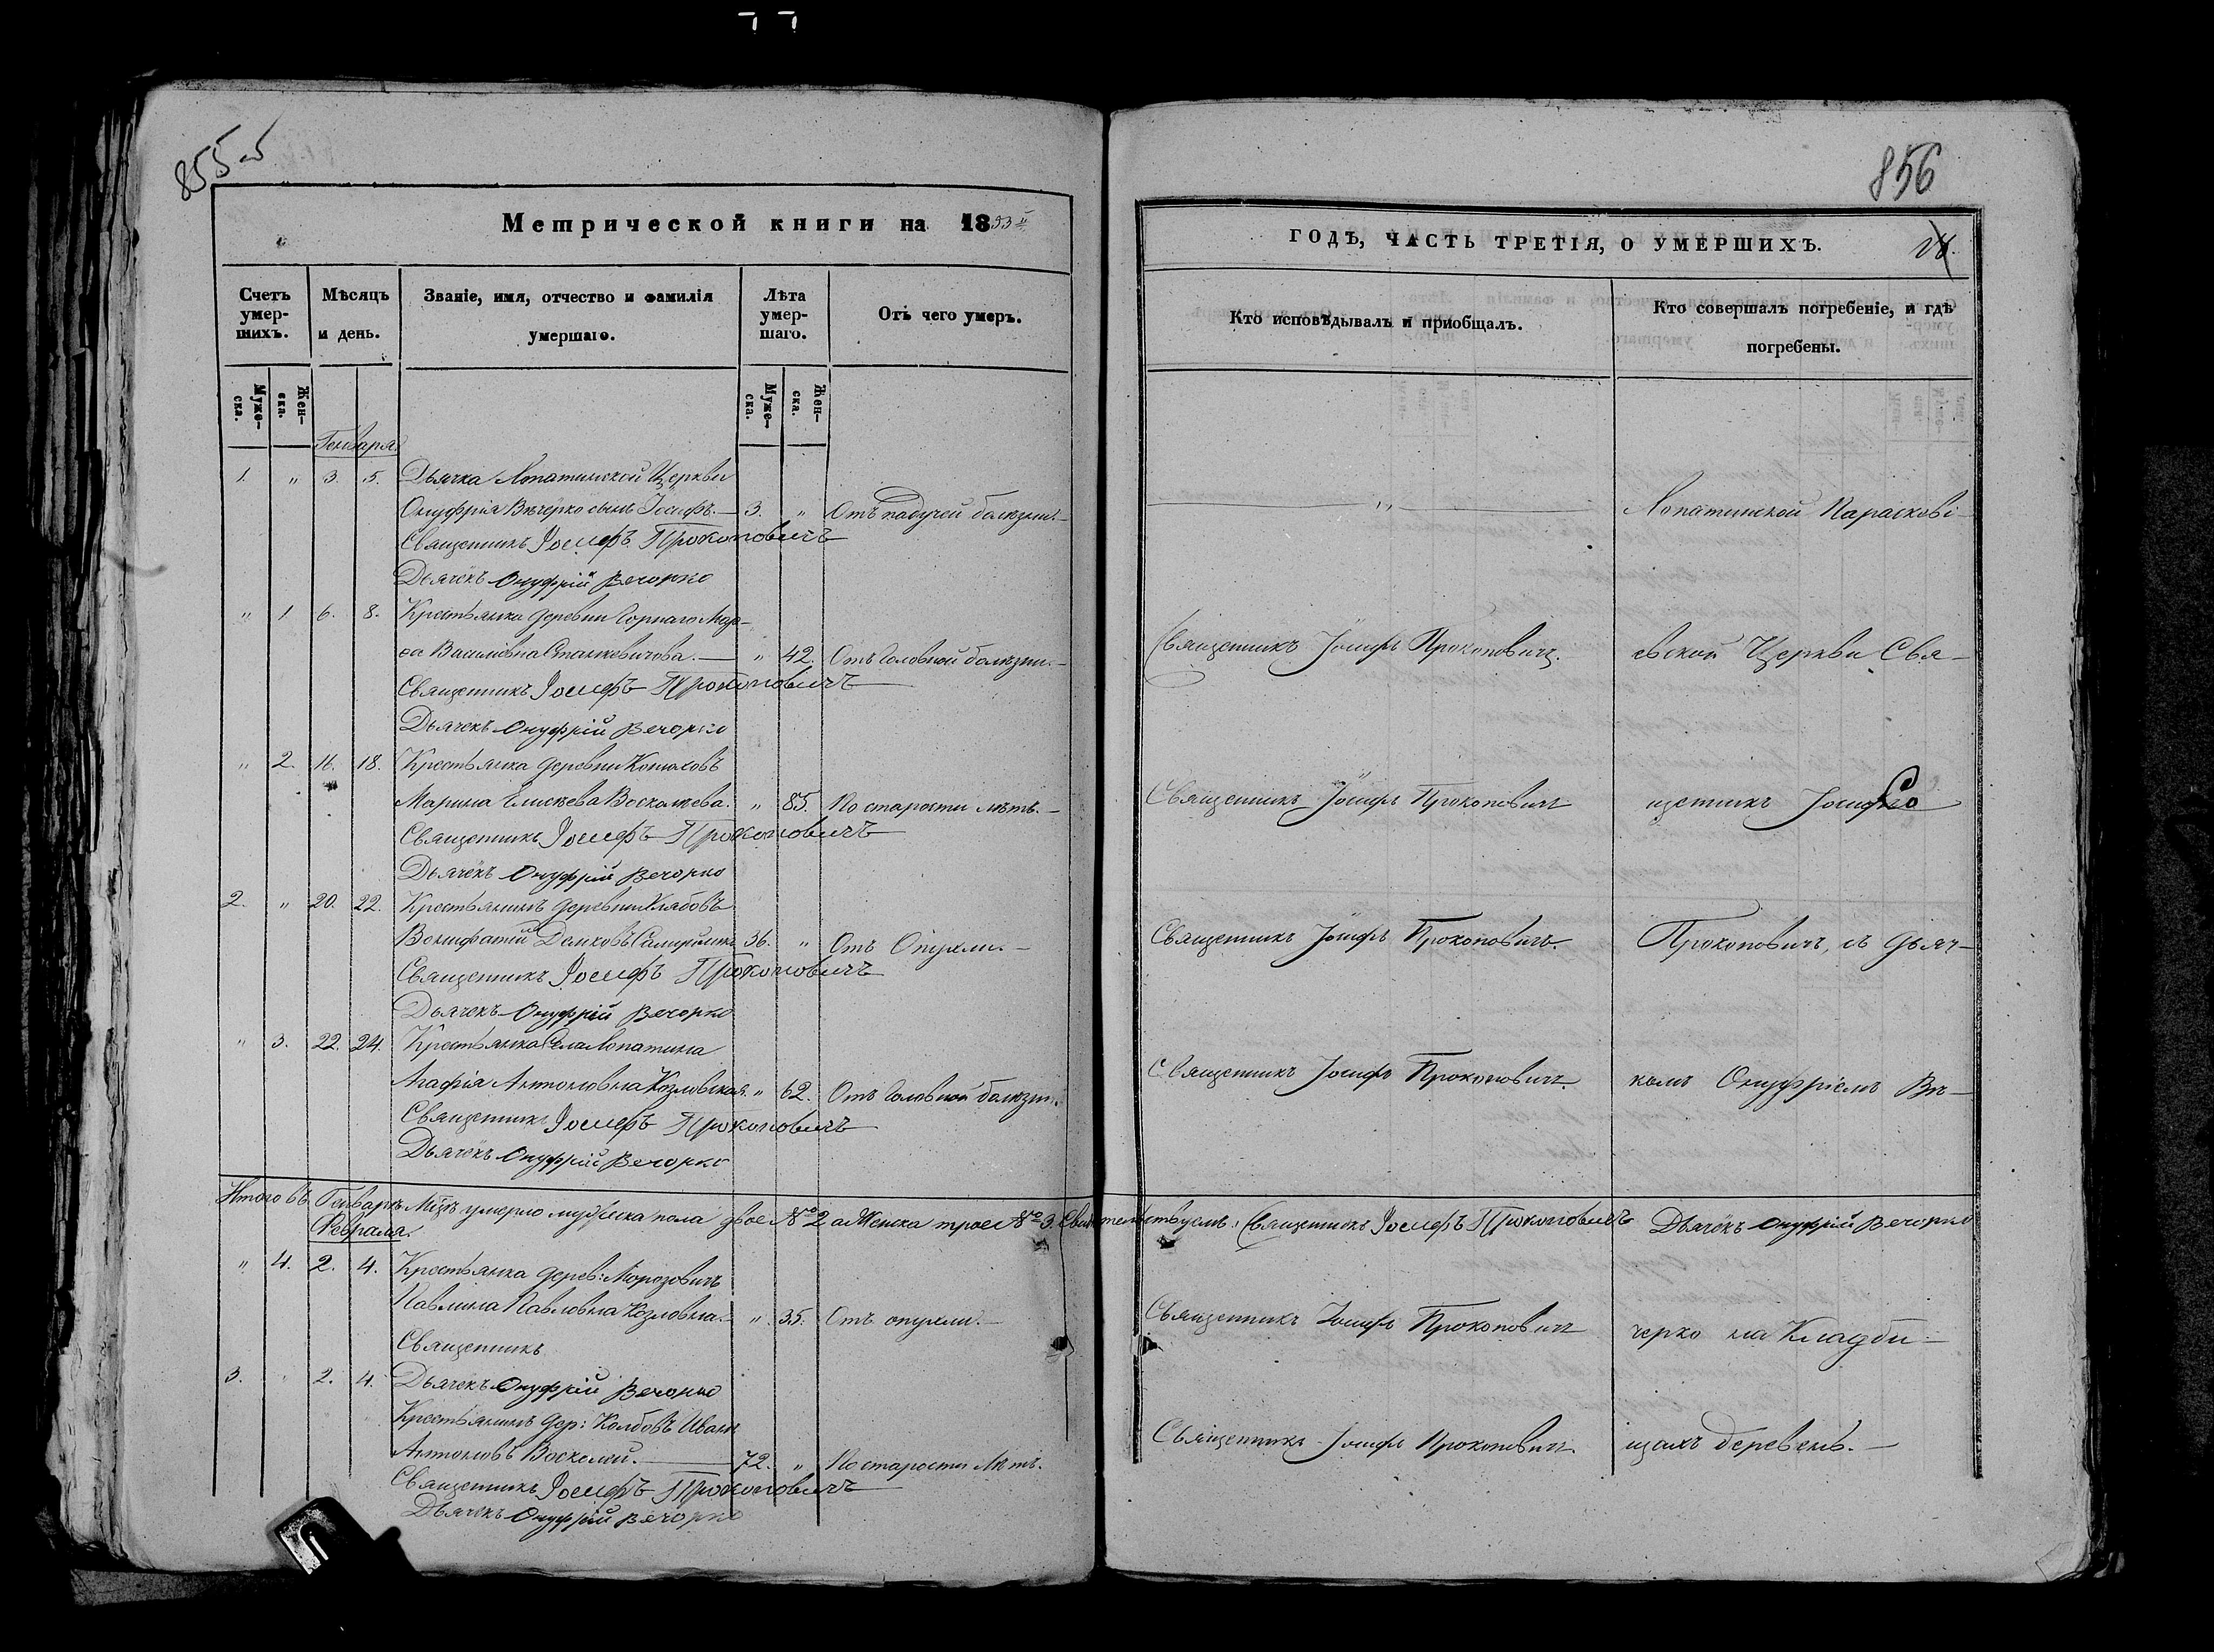 855 об
Метрической книги на 1853й
Счетъ умер-шихъ.
Мѣсяцъ и день.
Званіе, имя, отчество и фамилія умершаго.
Лѣта умер-шаго.
Отъ чего умеръ.
Муже-ска.
Жен-ска.
Муже-ска.
Жен-ска.
Генваря
1. " 3. 5. Дьячка Лопатинской Церкви
Онуфрія Вечерко сынъ Іосифъ.— 3. " Отъ падучей болѣзни.—
Священникъ Іосифъ Прокоповичъ
Дьячекъ Онуфрій Вечорко
" 1 6. 8. Крестьянка деревни Горнаго
Василіовна Станкевичова.— " 42. Отъ Головной болѣзни.—
Священникъ Іосифъ Прокоповичъ
Дьячекъ Онуфрій Вечорко
" 2. 16. 18. Крестьянка деревни
Марина Елисѣева " 85. По старости лѣтъ.—
Священникъ Іосифъ Прокоповичъ
Дьячекъ Онуфрій Вечорко
2. " 20. 22. Крестьянинъ деревни
Вонифатій 36. " Отъ Опухли.—
Священникъ Іосифъ Прокоповичъ
Дьячекъ Онуфрій Вечорко
" 3. 22. 24. Крестьянка Села Лопатина
Агафія Антоновна Козловская. " 62. Отъ Головной болѣзни.
Священникъ Іосифъ Прокоповичъ
Дьячекъ Онуфрій Вечорко
Итого въ Генварѣ Мцѣ умерло мужеска пола двое №2 а Женска трое №3. Свидетельствуемъ: Священникъ Іосифъ Прокоповичъ Дьячекъ Онуфрій Вечорко
Февраля.
" 4. 2. 4. Крестьянка дерев: Морозовичъ
Павлина Павловна Козловна.— " 35. Отъ опухли.—
Священникъ
3. " 2. 4. Дьячекъ Онуфрій Вечорко
Крестьянинъ дер: Колбовъ Иванъ
Антоновъ 72. " По старости Лѣтъ.
Священникъ Іосифъ Прокоповичъ
Дьячекъ Онуфрій Вечорко
856
ГОДЪ, ЧАСТЬ ТРЕТІЯ, О УМЕРШИХЪ.
Кто исповѣдывалъ и приобщалъ.
Кто совершалъ погребеніе, и гдѣ погребены.
— " — Лопатинской Параскові-
Священникъ Іосифъ Прокоповичъ. евской Церкви Свя-
Священникъ Іосифъ Прокоповичъ щенникъ Іосифъ
Священникъ Іосифъ Прокоповичъ. Прокоповичъ, съ дьяч-
Священникъ Іосифъ Прокоповичъ. комъ Онуфріемъ Ве-
Священникъ Іосифъ Прокоповичъ черко на Кладби-
Священникъ Іосифъ Прокоповичъ. щахъ деревень.—